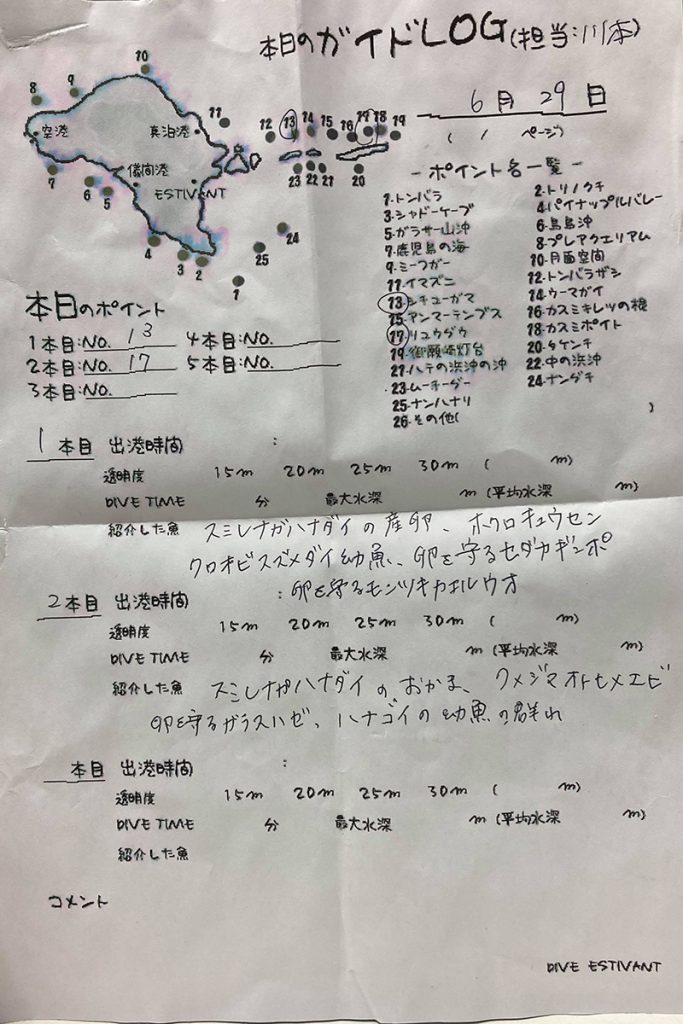 本日のガイドLOG(担当:川本)
6月29日
( / ページ)
8 9 10 11 12 13 14 15 16 17 18 19
空港 真泊港
儀間港
ESTIVANT
23 22 21 20
7 6 5 4 3 2 1 25 24
-ポイント名一覧-
1.トンバラ 2.トリノクチ
3.シャドーケーブ 4.パイナップルバレー
5.ガラサー山沖 6.鳥島沖
7.鹿児島の海 8.プレアクエリアム
9.ミーフガー 10.月面空間
11.イマズニ 12.トンバラザシ
13.シチューガマ 14.ウーマガイ
15.アンマーテンブス 16.カスミキレツの根
17.リュウダウ 18.カスミポイト
19.御願崎灯台 20.タケンチ
21.ハテの浜沖の沖 22.中の浜沖
23.ムーチーグー 24.ナンダチ
25.ナンハナリ
26.その他( )
本日のポイント
1本目:NO. 13 4本目:NO.
2本目:NO. 17 5本目:NO.
3本目:NO.
1本目 出港時間 :
透明度 15m 20m 25m 30m ( m)
DIVE TIME 分 最大水深 m (平均水深 m)
紹介した魚 スミレナガハナダイの産卵、ホクロキュウセン
クロオビスズメダイ幼魚、卵を守るセダカギンポ
:卵を守るモンツキカエルウオ
2本目 出港時間
透明度 15m 20m 25m 30m ( m)
DIVE TIME 分 最大水深 m (平均水深 m)
紹介した魚 スミレナガハナダイのおかま、クメジマオトヒメエビ
卵を守るガラスハゼ、ハナゴイの幼魚の群れ
本目 出港時間 :
透明度 15m 20m 25m 30m ( m)
DIVE TIME 分 最大水深 m (平均水深 m)
紹介した魚
コメント
DIVE ESTIVANT